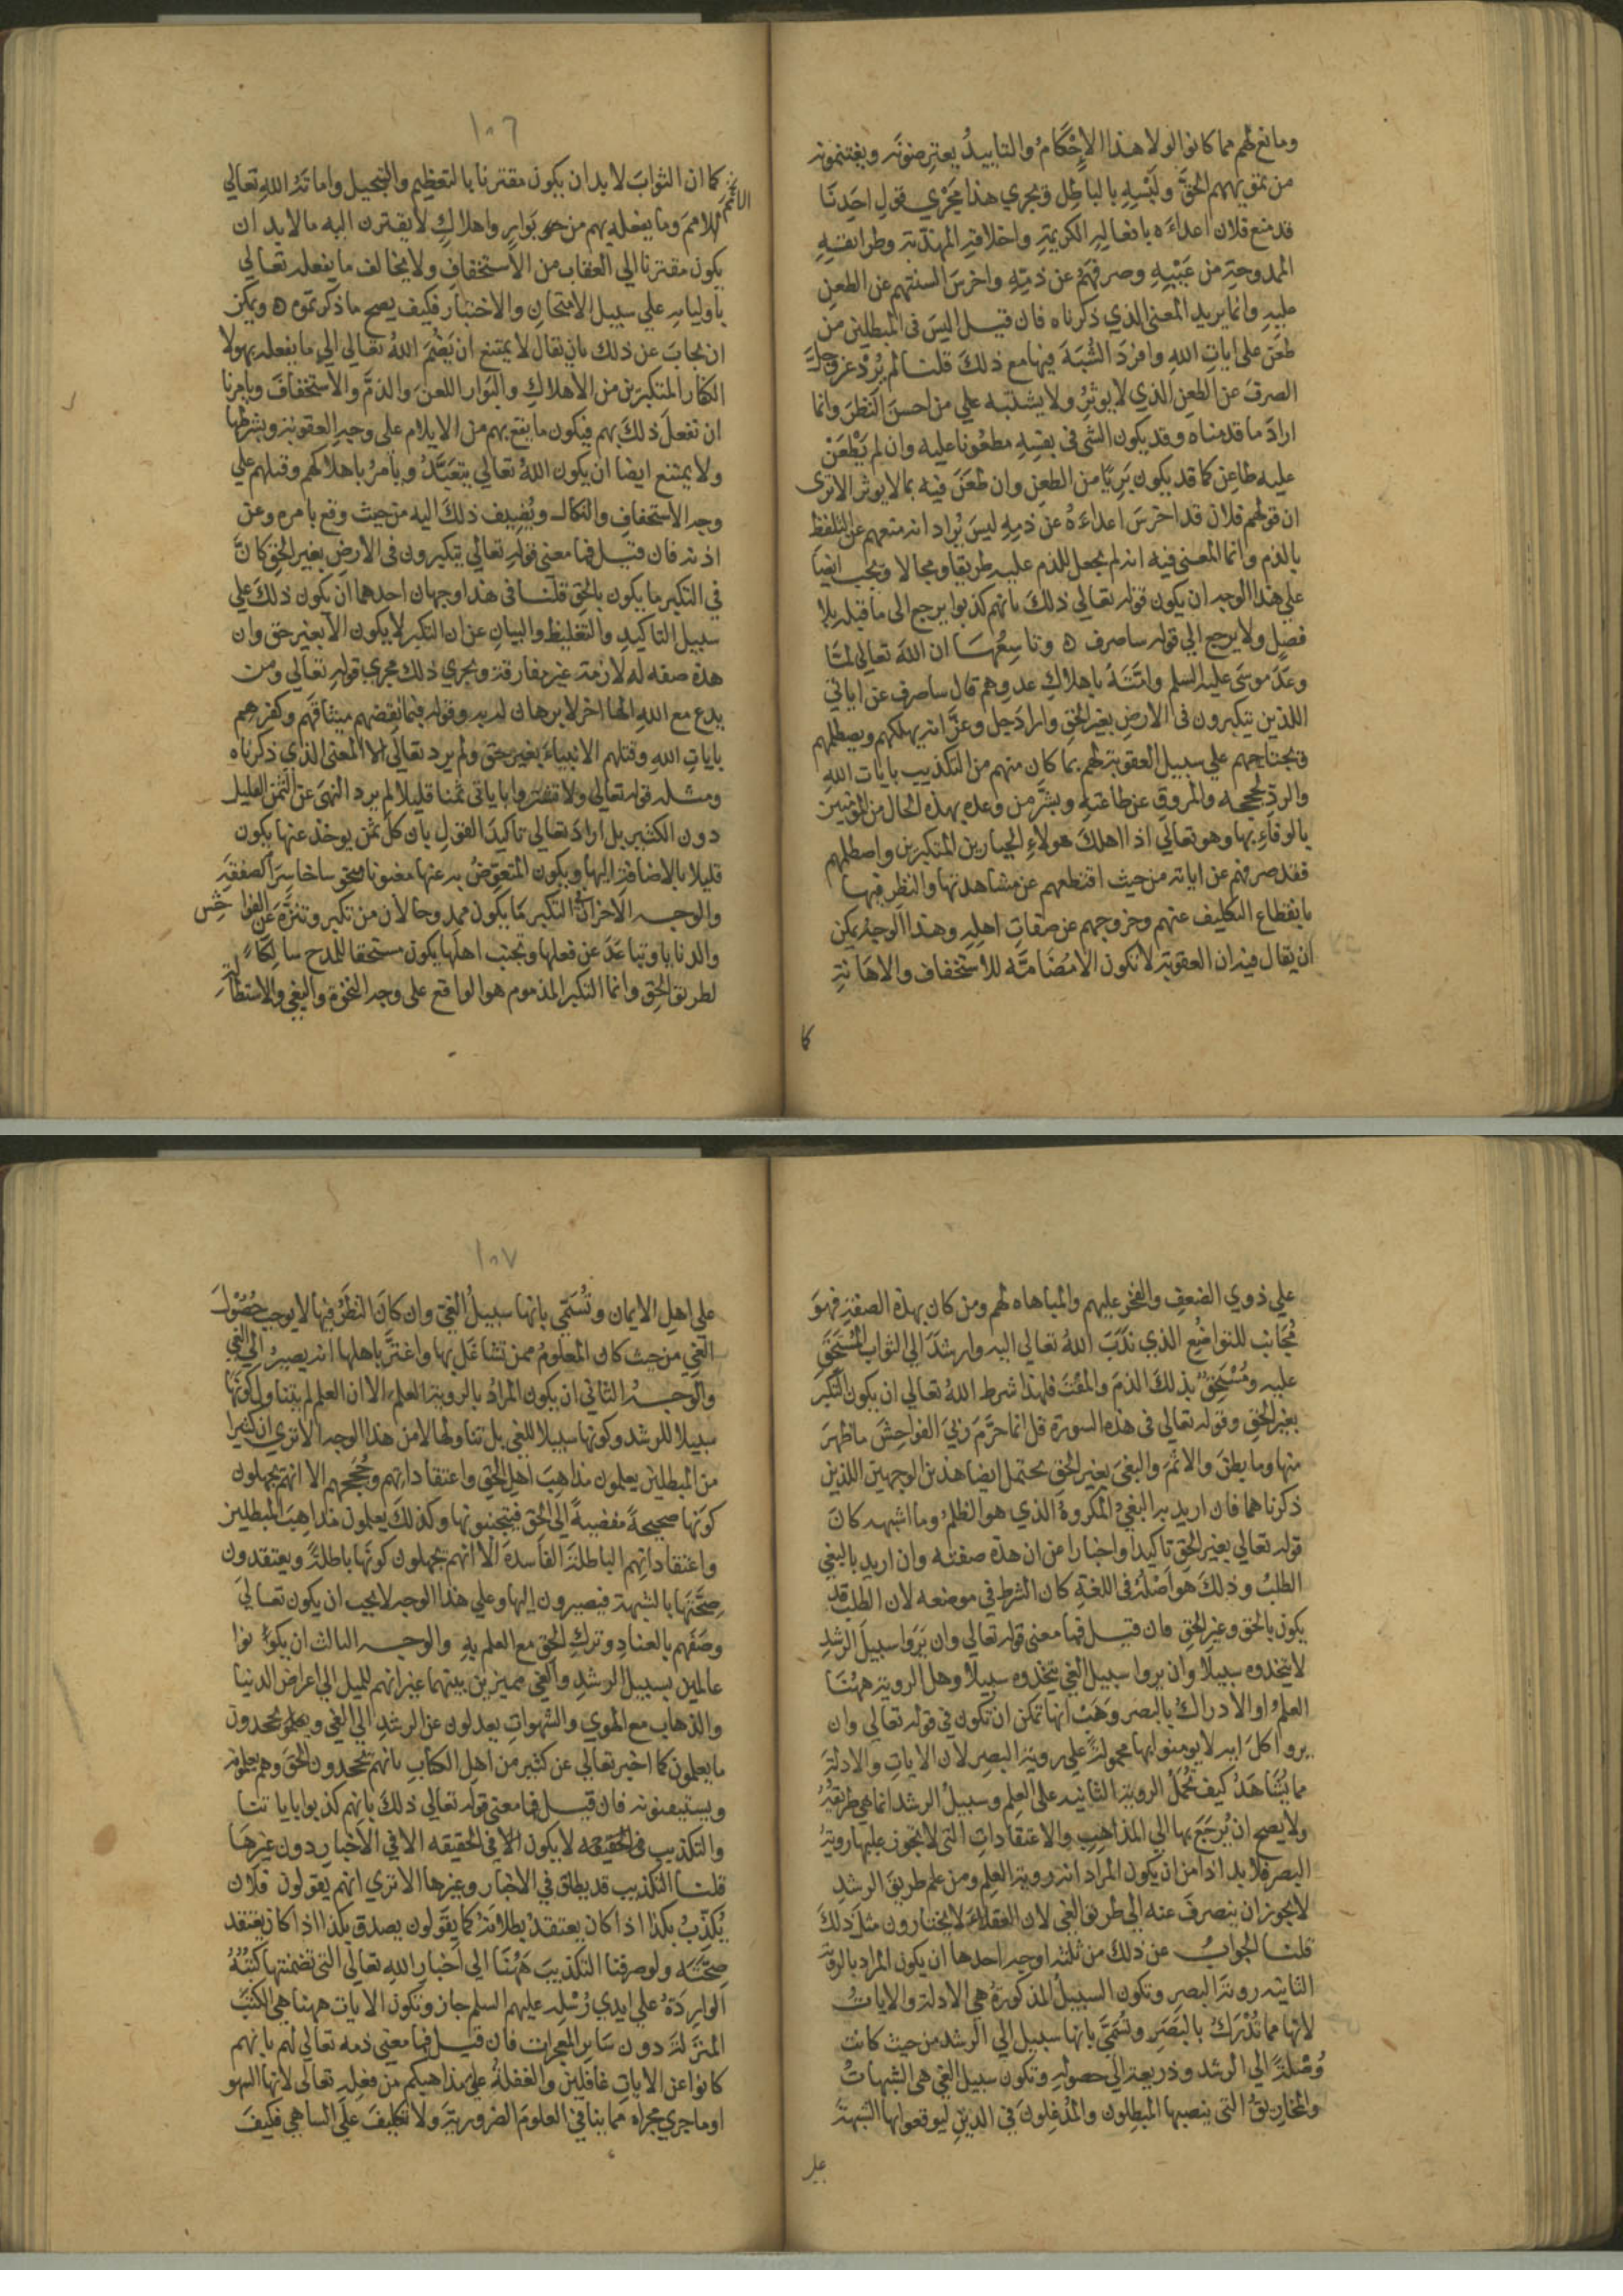 ومانع لهم مما كانوا لولا هذا الإحكام والتاييد يعترضونه ويغتنمونه
من تمويههم الحقَّ ولَبْسِهِ بالباطل ويجري هذا مَجْرَي قول احَدِنَا
قد منع فلان اعداءَه بافعالِهِ الكريمة واخلاقه المهذبة وطرايقِهِ
الممدوحة من عَيْبِهِ وصرفهم عن ذمِّهِ واخرسَ السنتهم عن الطعن
عليهِ وانما يريد المعنى الذي ذكرناه فان قيل اليسَ في المبطلين من
طعن على ايات اللهِ واورَدَ الشُبَهَ فيها مع ذلك قلنا لم يُرِدْ عز وجل
الصرفَ عن الطعن الذي لا يوثرُ ولا يشتبه علي من احسن النظر وانما
ارادَ ما قدمناه وقد يكون الشى في نفسِهِ مطعُونا عليه وان لم يَطْعَنْ
عليه طاعن كما قد يكون بَرِيًّا من الطعن وان طُعَنَ فيه بما لا يوثر الا ترى
ان قولهم فلان قد اخرسَ اعداءَهُ عن ذمِهِ ليسَ يُراد انه منعهم عن التلفظ
بالذم وانما المعنى فيه انه لم يجعل للذم عليه طريقا ومجالا ويجب ايضًا
علي هذا الوجه ان يكون قوله تعالي ذلكَ بانهم كذبوا يرجع الى ما قبله بلا
فصلٍ ولا يرجع الي قوله ساصرف ه وتاسِعُهَا ان الله تعالي لمّا
وعَدَ موسَى عليه السلم وامَّتَهُ باهلاك عدوهم قال ساصرف عن اياتي
اللذين يتكبرون في الارضِ بغير الحقِ وارادَ جل وعزَّ انه يهلكهم ويصطلمهم
ويجتاحهم علي سبيل العقوبة لهم بما كان منهم من التكذيب بايات الله
والردِّ لحججه والمروق عن طاعتهِ وبشَّر من وعده بهذه الحال من المومنين
بالوفاءِ بها وهو تعالي اذا اهلك هولاءِ الجبارين المتكبرين واصطلمهم
فقد صرفهم عن اياته من حيث اقتطعهم عن مشاهدتها والنظرِ فيها
بانقطاع التكليف عنهم وخروجهم عن صفات اهلِهِ وهذا الوجه يمكن
ان يقال فيه ان العقوبة لا تكون الا مُضَامَّه للاستخفاف والاهانة
كا
١٠٦
كما ان الثوابَ لا بد ان يكون مقترنا بالتعظيم والتبجيل واماتَةُ اللهِ تعالي
الامم
للامم وما يفعله بهم من بَوَارٍ واهلاكٍ لا يقترن اليه ما لا بد ان
يكون مقترنا الي العقاب من الاستخفافِ ولا يخالف ما يفعله تعالى
باوليايه علي سبيل الامتحانِ والاختبار فكيف يصح ما ذكرتموه ه ويمكن
ان يجابَ عن ذلك بان يقال لا يمتنع ان يَضُمَ اللهُ تعالي الي ما يفعله بهولا
الكفار المتكبرين من الاهلاكِ والبوار اللعنَ والذمَّ والاستخفافَ ويامرنا
ان نفعلَ ذلكَ بهم فيكون ما يقع بهم من الايلام على وجهِ العقوبة وبشرطها
ولا يمتنع ايضا ان يكون اللهُ تعالي يتعَبَّدُ ويامرُ باهلاكهم وقتلهم علي
وجه الاستخفافِ والنكال ويُضِيف ذلكَ اليه من حيث وقع بامره وعن
اذنه فان قيل فما معنى قوله تعالي يتكبرون في الارضِ بغير الحق كانَّ
في التكبر ما يكون بالحق قلنا في هذا وجهان احدهما ان يكون ذلكَ علي
سبيل التاكيدِ والتغليظ والبيانِ عن ان التكبر لا يكون الا بغير حق وان
هذه صفه له لازمة غير مفارقة ويجري ذلك مجري قوله تعالي ومن
يدع مع اللهِ الها اخر لا برهان له به وقوله فبما نقضهم ميثاقهم وكفرهم
بايات اللهِ وقتلهم الانبياءَ بغير حق ولم يرد تعالي الا المعنى الذي ذكرناه
ومثله قوله تعالي ولا تشتروا باياتى ثمنا قليلا لم يرد النهىَ عن الثمن القليل
دون الكثير بل ارادَ تعالي تاكيدَ القول بان كل ثمن يوخذ عنها يكون
قليلا بالاضافة اليها ويكون المتعوِّضُ به عنها مغبونا مبخوسا خاسِرَ الصفقة
والوجه الاخر ان التكبر ما يكون ممدوحا لان من تكبر وتنزَّهَ عن الفواحش
والدنايا وتباعَدَ عن فعلها وتجنب اهلَها يكون مستحقا للمدح سالِكًا
لطريق الحق وانما التكبر المذموم هو الواقع على وجه النخوة والبغي والاستطالة
علي ذوي الضعفِ والفخر عليهم والمباهاه لهم ومن كان بهذة الصفة فهوَ
مُجَانِبٌ للتواضُعِ الذي نَدَبَ اللهُ تعالي اليه وارشدَ الي الثواب المُسْتَحَقَّ
عليهِ ومُسْتَحِقٌّ بذلكَ الذمَ والمقْتَ فلهذا شرط اللهُ تعالي ان يكون التكبرَ
بغير الحق وقوله تعالي في هذه السورة قل انما حرَّمَ ربيَ الفواحِشَ ما ظهرَ
منها وما بطنَ والاثمَ والبغيَ بغير الحق يحتمل ايضا هذين الوجهين اللذين
ذكرناهما فان اريد به البغيُ المكروهُ الذي هو الظلمُ وما اشبهه كان
قوله تعالي بغير الحق تاكيدا واخبارا عن ان هذه صفته وان اريد بالبغي
الطلبُ وذلكَ هو اصْلُهُ في اللغةِ كان الشرط في موضعه لان الطلب قد
يكون بالحق وغير الحق فان قيل فما معنى قوله تعالي وان يَرَوا سبيلَ الرشدِ
لا يتخذوه سبيلًا وان يروا سبيل الغي يتخذوه سبيلا وهل الرويةُ ههُنَا
العلمُ او الادراكُ بالبصر وهَبْ انها تمكن ان تكون في قوله تعالي وان
يروا كلَ ايه لا يومنوا بها محمولةً علي رويةِ البصرِ لان الاياتِ والادلةَ
مما يُشَاهَدُ كيف تُحْمَلُ الرويةُ الثانيه على العلمِ وسبيلُ الرشد انما هي طريقهُ
ولا يصح ان يُرجَعَ بها الي المذاهبِ والاعتقاداتِ التى لا تجوز عليها رويةُ
البصر فلا بد اذا من ان يكون المراد انه رويةُ العلمِ ومن علم طريقَ الرشد
لا يجوز ان ينصرفَ عنه الى طريق الغي لان العقلاءَ لا يختارون مثلَ ذلكَ
قلنا الجوابُ عن ذلكَ من ثلثة اوجه احدها ان يكون المراد بالروية
الثانيه رويةَ البصرِ وتكون السبيلُ المذكورةُ هي الادلة والاياتُ
لانها مما تُدْرَكُ بالبَصَرِ وتُسَمَّى بانها سبيل الي الرشد من حيث كانت
وُصْلةً الي الرشد وذريعة الي حصولِهِ وتكون سبيل الغي هي الشبهاتُ
والمخاريقُ التى ينصبها المبطِلون والمُدْغِلونَ في الدينِ ليوقعوا بها الشبهةَ
علي
١٠٧
علي اهلِ الايمان وتُسَمَّى بانها سبيلُ الغي وان كانَ النظَرُ فيها لا يوجب حُصُولَ
الغي من حيث كان المعلومُ ممن تشاغَل بها واغتَّر باهلها انه يصيرُ الي الغي
والوجهُ الثاني ان يكون المرادُ بالروية العلمَ الا ان العلم لم يتناول كونَها
سبيلا للرشد وكونها سبيلا للغي بل تناولها لا من هذا الوجه الا تري ان كثيرا
من المبطلين يعلمون مذاهبَ اهل الحق واعتقاداتِهم وحُجَجهم الا انهم يجهلون
كونَها صحيحةً مفضيةً الى الحق فيتجنبونها وكذلكَ يعلمون مذاهبَ المبطلين
واعتقاداتِهم الباطلة الفاسدة الا انهم يجهلون كونَها باطلةً ويعتقدون
صِحَّتَها بالشبهة فيصيرون اليها وعلي هذا الوجه لا يجب ان يكون تعالي
وصَفَهم بالعنادِ وتركِ الحقِ مع العلم بهِ والوجه الثالث ان يكونوا
عالمين بسبيل الرشدِ والغي مميزين بينهما غير انهم للميل الي اعراض الدنيا
والذهاب مع الهوي والشهوات يعدلون عن الرشدِ الي الغي ويجحدون
ما يعلمون كما اخبر تعالي عن كثير من اهلِ الكتابِ بانهم يجحدون الحقَ وهم يعلمونه
ويستيقنونه فان قيل فما معنى قوله تعالي ذلكَ بانهم كذبوا باياتنا
والتكذيب في الحقيقه لا يكون الا في الاخبارِ دون غيرهَا
قلنا التكذيب قد يطلق في الاخبار وغيرها الا تري انهم يقولون فلان
يُكَذِّبُ بكذا اذا كان يعتقدُ بطلانَهُ كما يقولون يصدق بكذا اذا كان يعتقد
صِحَّتَه ولو صرفنا التكذيبَ هَهُنَا الي اخبارِ اللهِ تعالي التى تضمنتها كتبُهُ
الوارِدَةُ علي ايدي رُسْلِهِ عليهم السلم جاز وتكون الايات ههنا هي الكتبُ
المنزلة دون سَايرِ المعجزات فان قيل فما معنى ذمه تعالي لهم بانهم
كانوا عن الاياتِ غافلين والغفلةُ علي مذاهبكم من فعلِهِ تعالى لانها السهو
او ما جري مجراه مما ينافي العلومَ الضروريةَ ولا تكليفَ علَي الساهي فكيفَ